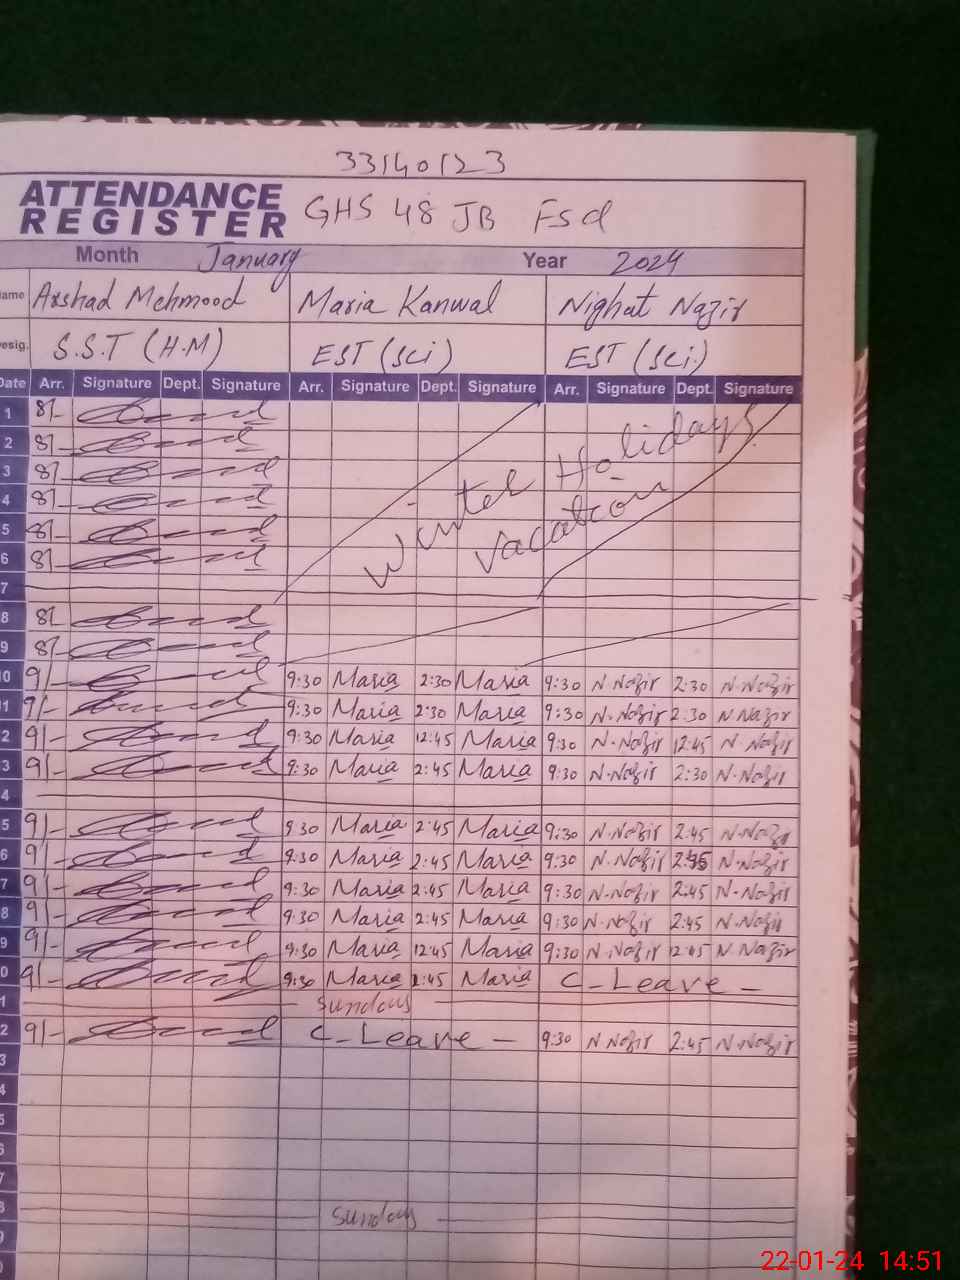 33140123
ATTENDANCE
REGISTER GHS 48 JB Fsd
Month January Year 2024
ame Arshad Mehmood Maria Kanwal Nighat Nazir
esig. S.S.T (H.M) EST (Sci) EST (Sci.)
Date Arr. Signature Dept. Signature Arr. Signature Dept. Signature Arr. Signature Dept. Signature
1 8/-
2 8/-
3 8/-
4 8/-
5 8/-
6 8/-
Winter Holidays
Vacation
7
8 8/-
9 8/-
10 9/- 9:30 Maria 2:30 Maria 9:30 N.Nazir 2:30 N.Nazir
11 9/- 9:30 Maria 2:30 Maria 9:30 N.Nazir 2:30 N Nazir
2 9/- 9:30 Maria 12:45 Maria 9:30 N.Nazir 12:45 N.Nazir
3 9/- 9:30 Maria 2:45 Maria 9:30 N.Nazir 2:30 N.Nazir
4
5 9/- 9:30 Maria 2:45 Maria 9:30 N.Nazir 2:45 N.Nazir
6 9/- 9:30 Maria 2:45 Maria 9:30 N.Nazir 2:45 N.Nazir
7 9/- 9:30 Maria 2:45 Maria 9:30 N.Nazir 2:45 N.Nazir
8 9/- 9:30 Maria 2:45 Maria 9:30 N.Nazir 2:45 N.Nazir
9 9/- 9:30 Maria 12:45 Maria 9:30 N.Nazir 12:45 N.Nazir
0 9/- 9:30 Maria 2:45 Maria C-Leave -
1 Sunday
2 9/- C-Leave - 9:30 N.Nazir 2:45 N.Nazir
3
4
5
6
7
8 Sunday
9
0
22-01-24 14:51